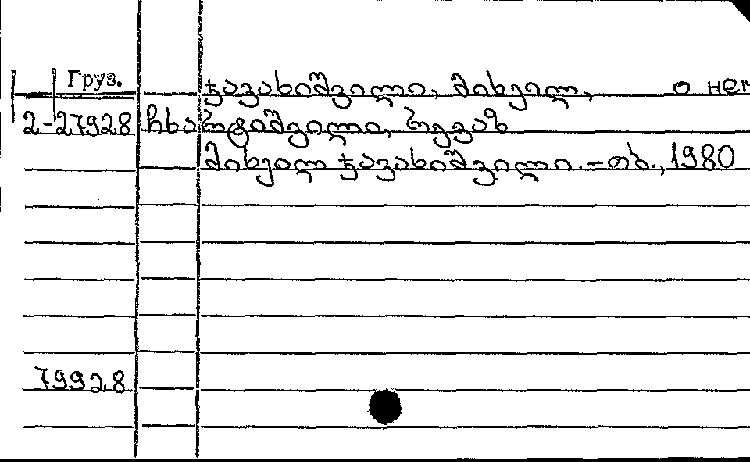 Груз.
ჯავახიშვილი, მიხეილ, о нем
2-27928 ჩხარტიშვილი, რევაზ
მიხეილ ჯავახიშვილი. - თბ., 1980
79928